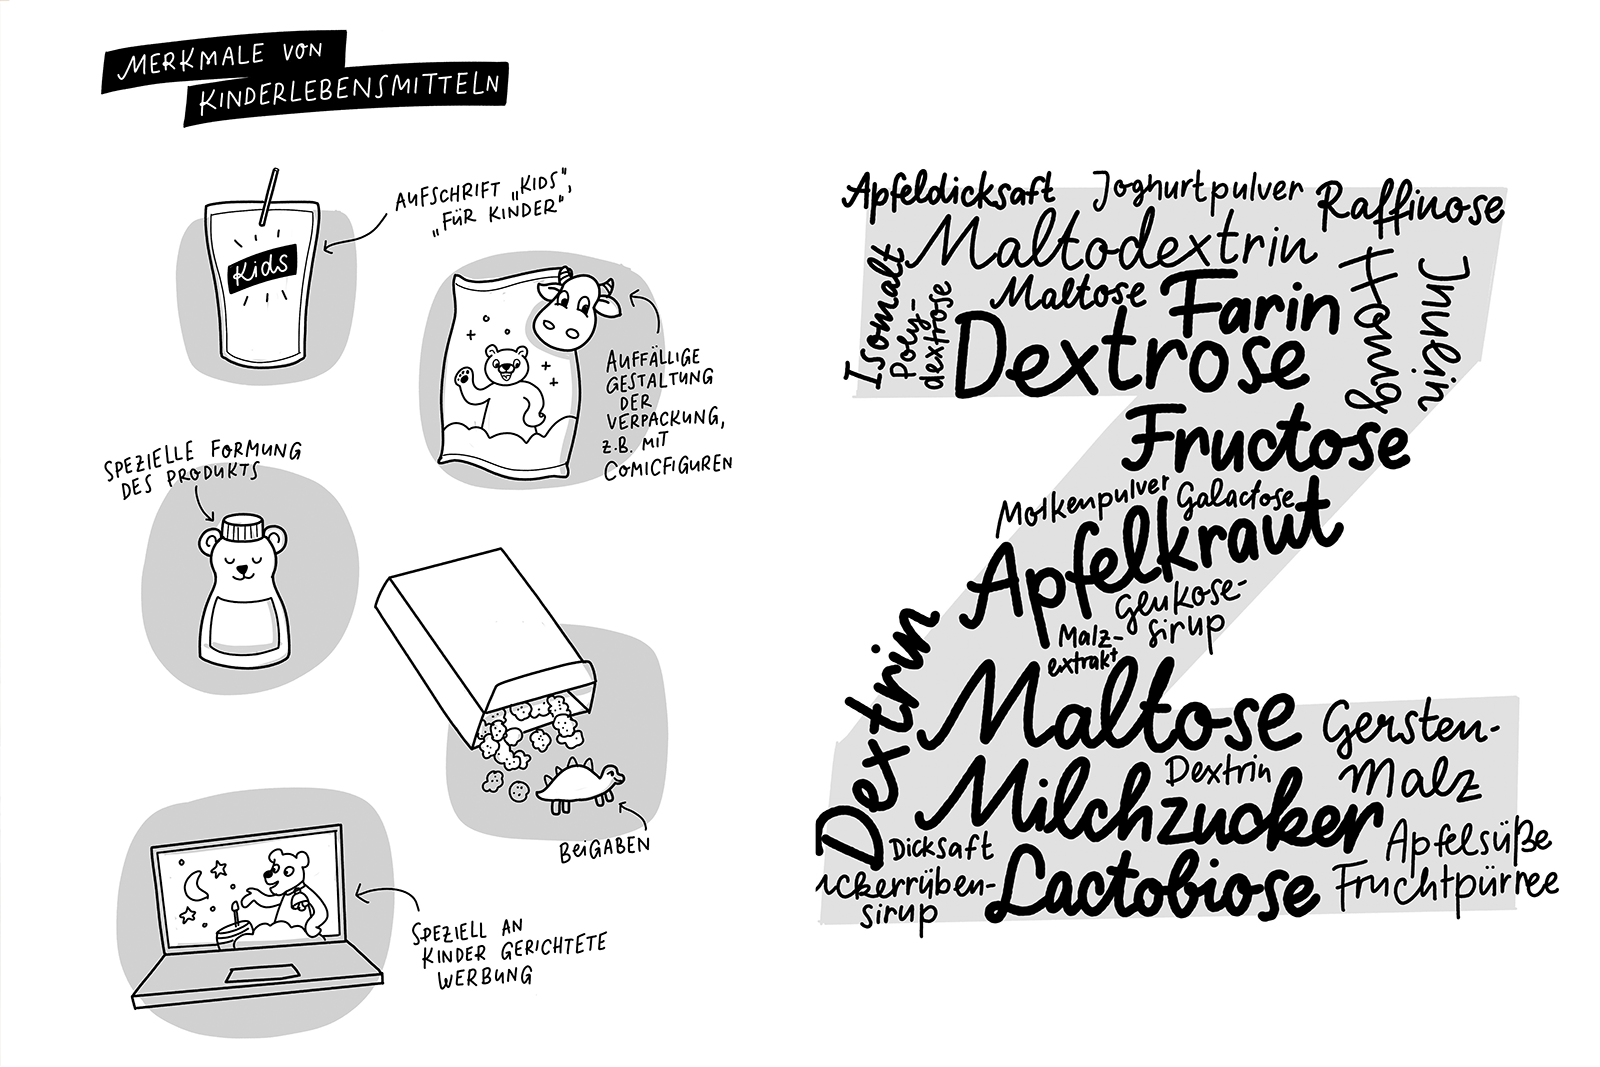 MERKMALE VON
KINDERLEBENSMITTELN
AUFSCHRIFT „KIDS“,
„FÜR KINDER“
Kids
AUFFÄLLIGE
GESTALTUNG
DER
VERPACKUNG,
Z.B. MIT
COMICFIGUREN
SPEZIELLE FORMUNG
DES PRODUKTS
BEIGABEN
SPEZIELL AN
KINDER GERICHTETE
WERBUNG
Apfeldicksaft Joghurtpulver Raffinose
Maltodextrin
Isomalt
Poly-
dextrose
Maltose Farin
Honig
Inulin
Dextrose
Fructose
Molkenpulver Galactose
Apfelkraut
Glukose-
sirup
Malz-
extrakt
Dextrin
Maltose Gersten-
Malz
Dextrin
Milchzucker
Apfelsüße
Dicksaft
uckerrüben-
sirup
Lactobiose Fruchtpürree